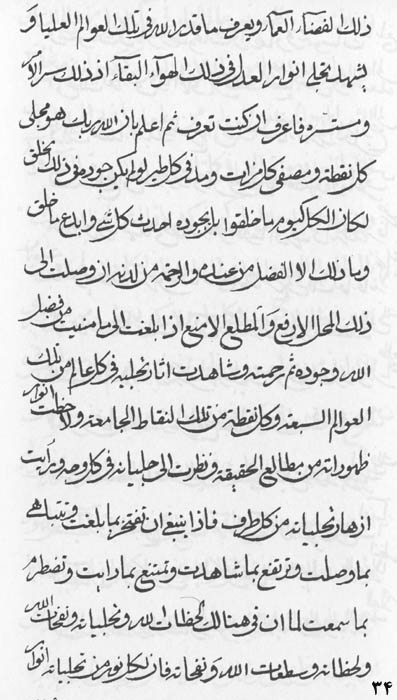 ذلك الفضاء العماء ويعرف ما قدر الله فى تلك العوالم العليا و
يشهد تجلى انوار العدل فى ذلك الهواء البقاء اذ ذلك سر الامر
و مستسره فاعرف ان كنت تعرف ثم اعلم بان الله ربك هو مجلى
كل نقطة و مصفى كل مرات و مدفى كل طير لو لم يكن جوده فى ذلك الخلق
لكان الكل كيوم ما خلقوا بل بجوده احدث كل شئ و ابدع ما خلق
و ما ذلك الا الفضل من عنده والرحمة من لدنه ان وصلت الى
ذلك المحل الارفع و المطلع الامنع اذا بلغت الى ما منيت من فضل
الله وجوده ثم رحمته و شاهدت اثار تجليه فى كل عالم من تلك
العوالم السبعة و كل نقطة من تلك النقاط الجامعة و لاحظت انوار
ظهوراته من مطالع الحقيقه و نظرت الى جلياته فى كل وجه و رأيت
ازهار تجلياته من كل طرف فاذا ينبغى ان تفتخر بما بلغت و تتباهى
بما وصلت و ترتفع بما شاهدت و تمتنع بما رايت و تضطرم
بما سمعت لما ان فى هنالك لحظات الله و تجلياته و نفحات الله
و لحظاته و سطعات الله و نفحاته فان لكل نور من تجلياته انوار
٣٤